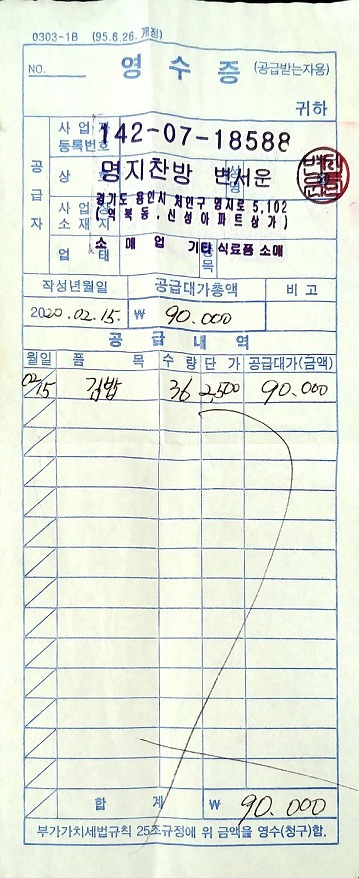 0303-1B (95.6.26. 개정)
NO.
영 수 증 (공급받는자용)
귀하
공급자
사업자등록번호 142-07-18588
상호 명지찬방 성명 변서운
사업장소재지 경기도 용인시 처인구 명지로 5,102
(역북동, 신성아파트상가)
업태 소 매 업 종목 기타 식료품 소매
작성년월일 공급대가총액 비 고
2020.02.15. ₩ 90.000
공 급 내 역
월일 품 목 수 량 단 가 공급대가(금액)
02/15 김밥 36 2,500 90.000
합 계 ₩ 90.000
부가가치세법규칙 25조규정에 위 금액을 영수(청구)함.